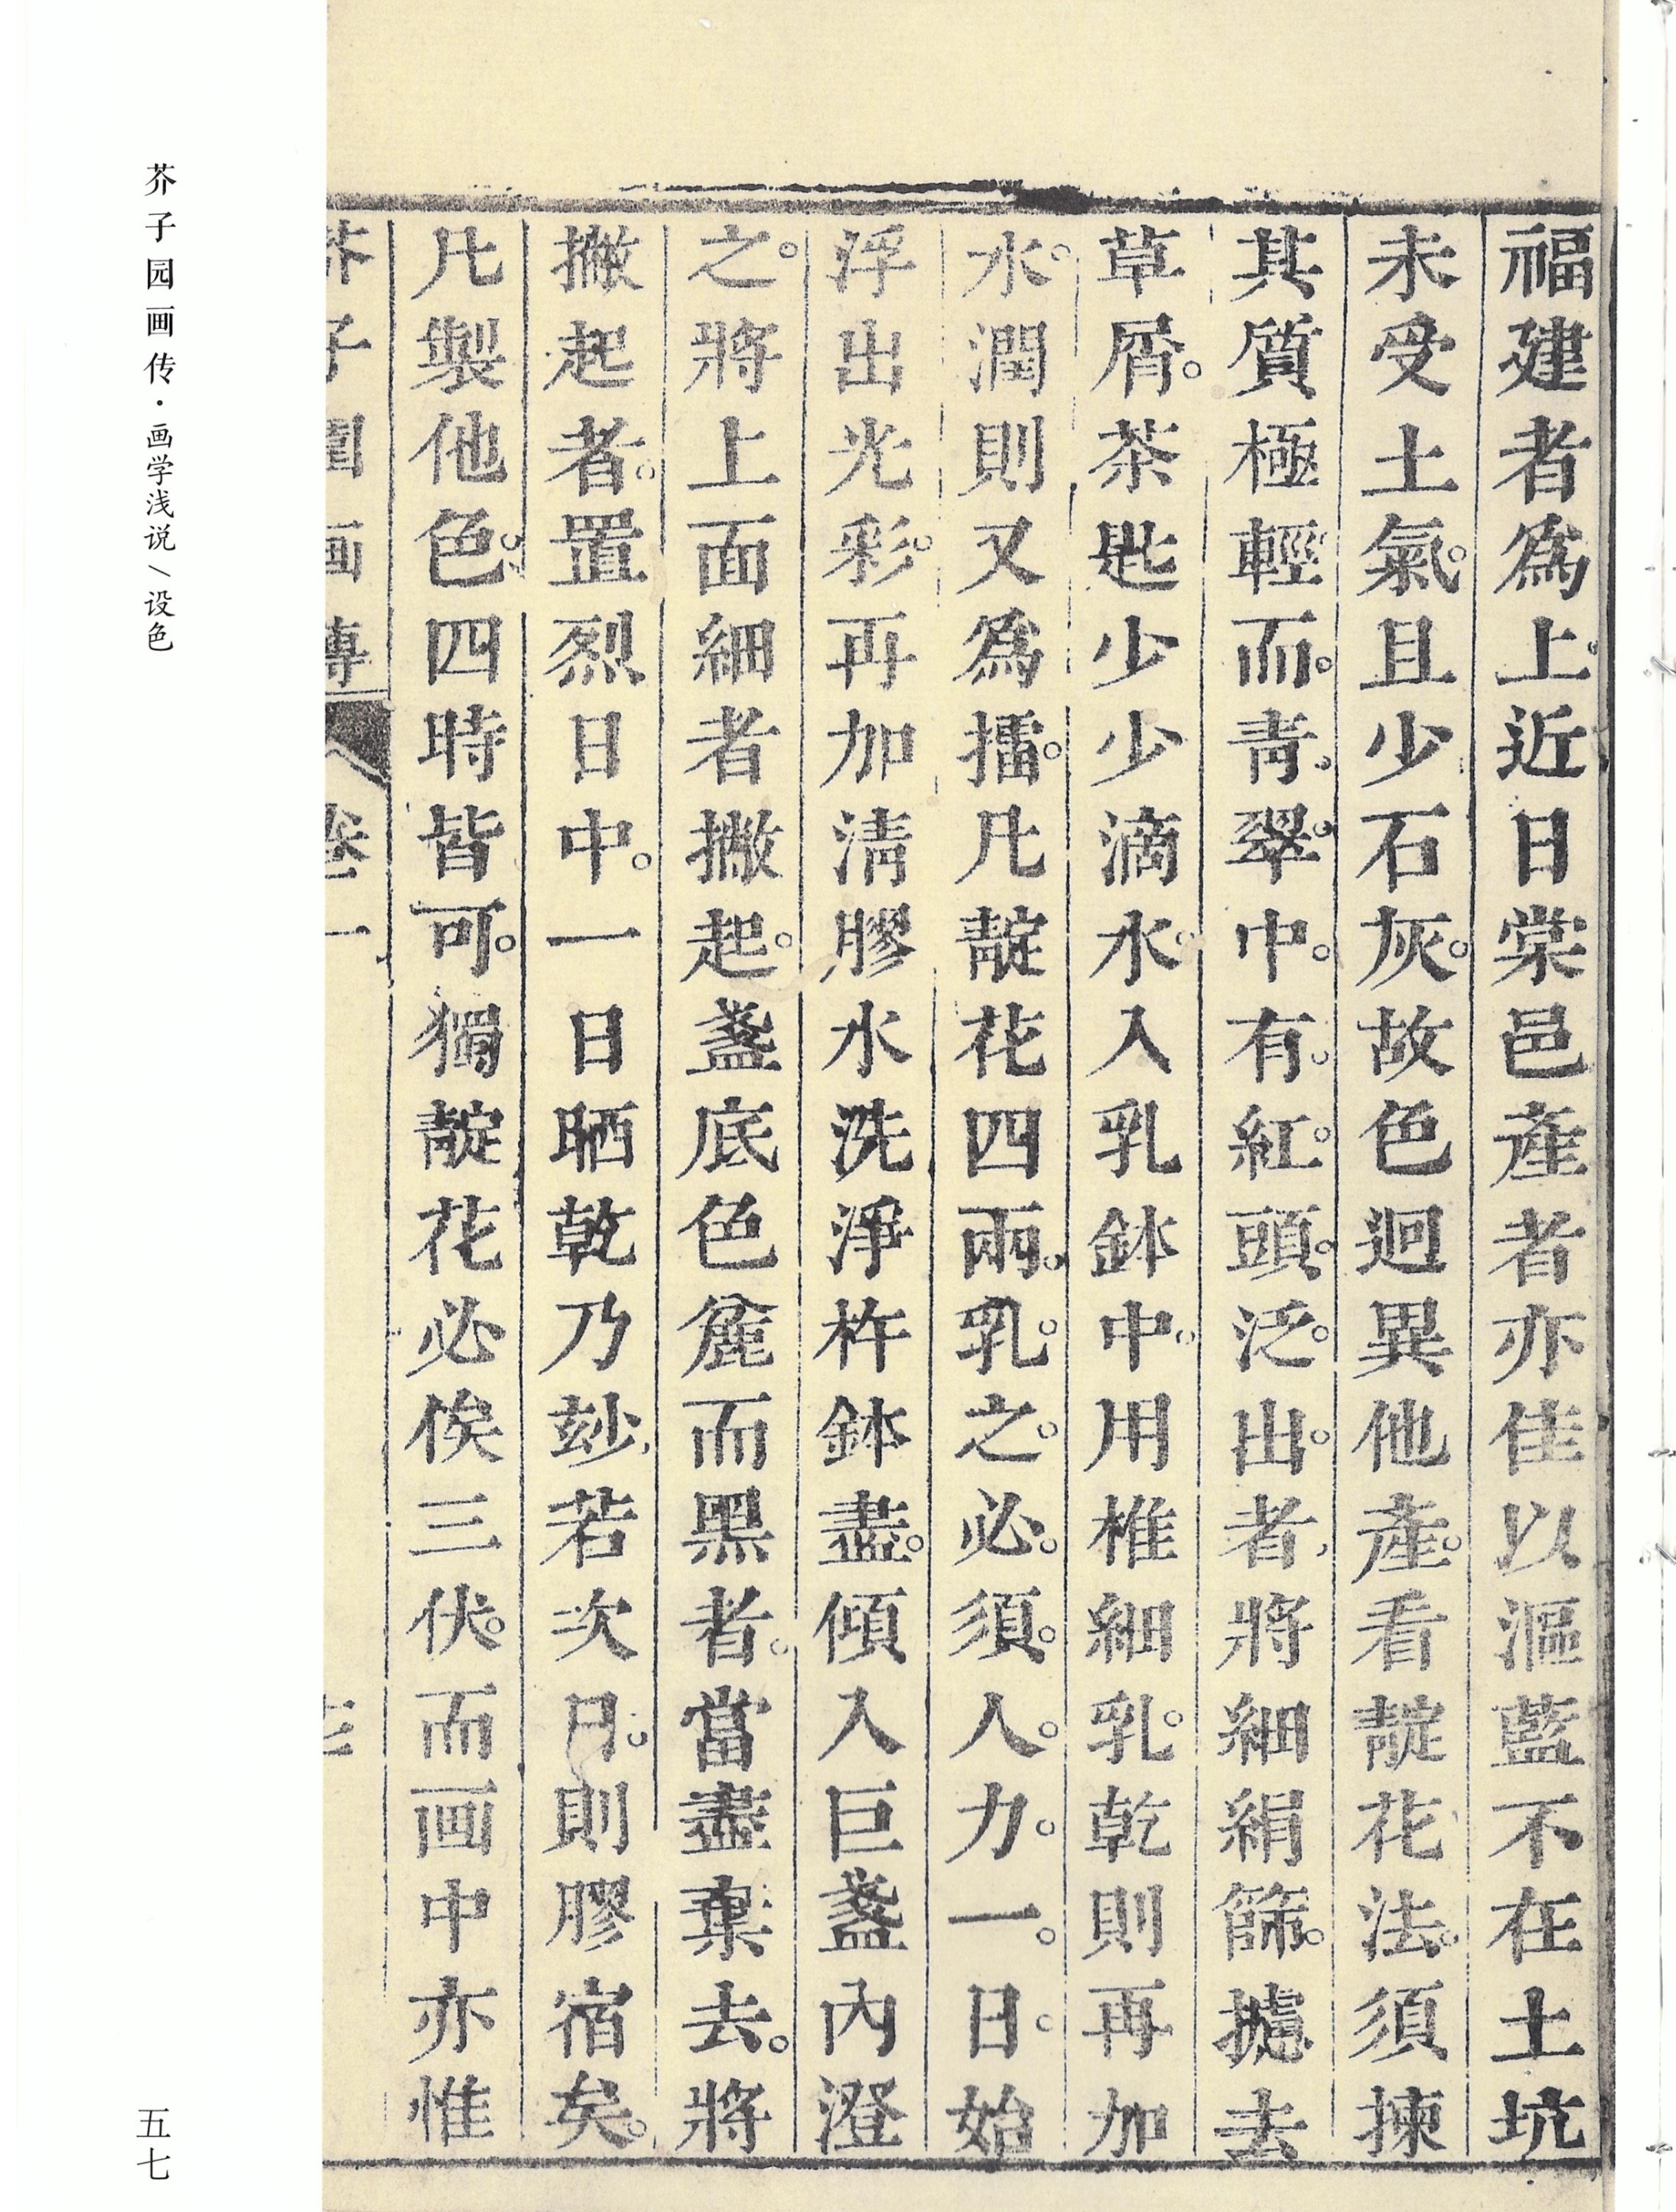 福建者爲上近日棠邑產者亦佳以漚藍不在土坑
未受土氣。且少石灰。故色迥異他產。看靛花法。須揀
其質極輕而。青翠。中。有。紅。頭。泛。出。者將細絹篩。攄去
草屑。茶匙少少滴水。入乳鉢中。用椎細乳。乾則再加
水。潤則又爲擂。凡靛花四兩。乳。之。必。須。人。力。一。日。始
浮出光彩。再加淸膠水洗淨杵鉢盡。傾入巨盞內澄
之。將上面細者撇起。盞底色麄而黑者。當盡棄去。將
撇起者。置烈日中。一日晒乾乃玅若次日。則膠宿矣。
凡製他色。四時皆可。獨靛花必俟三伏。而画中亦惟
芥子園画傳
卷一
芥子园画传·画学浅说/设色
五七